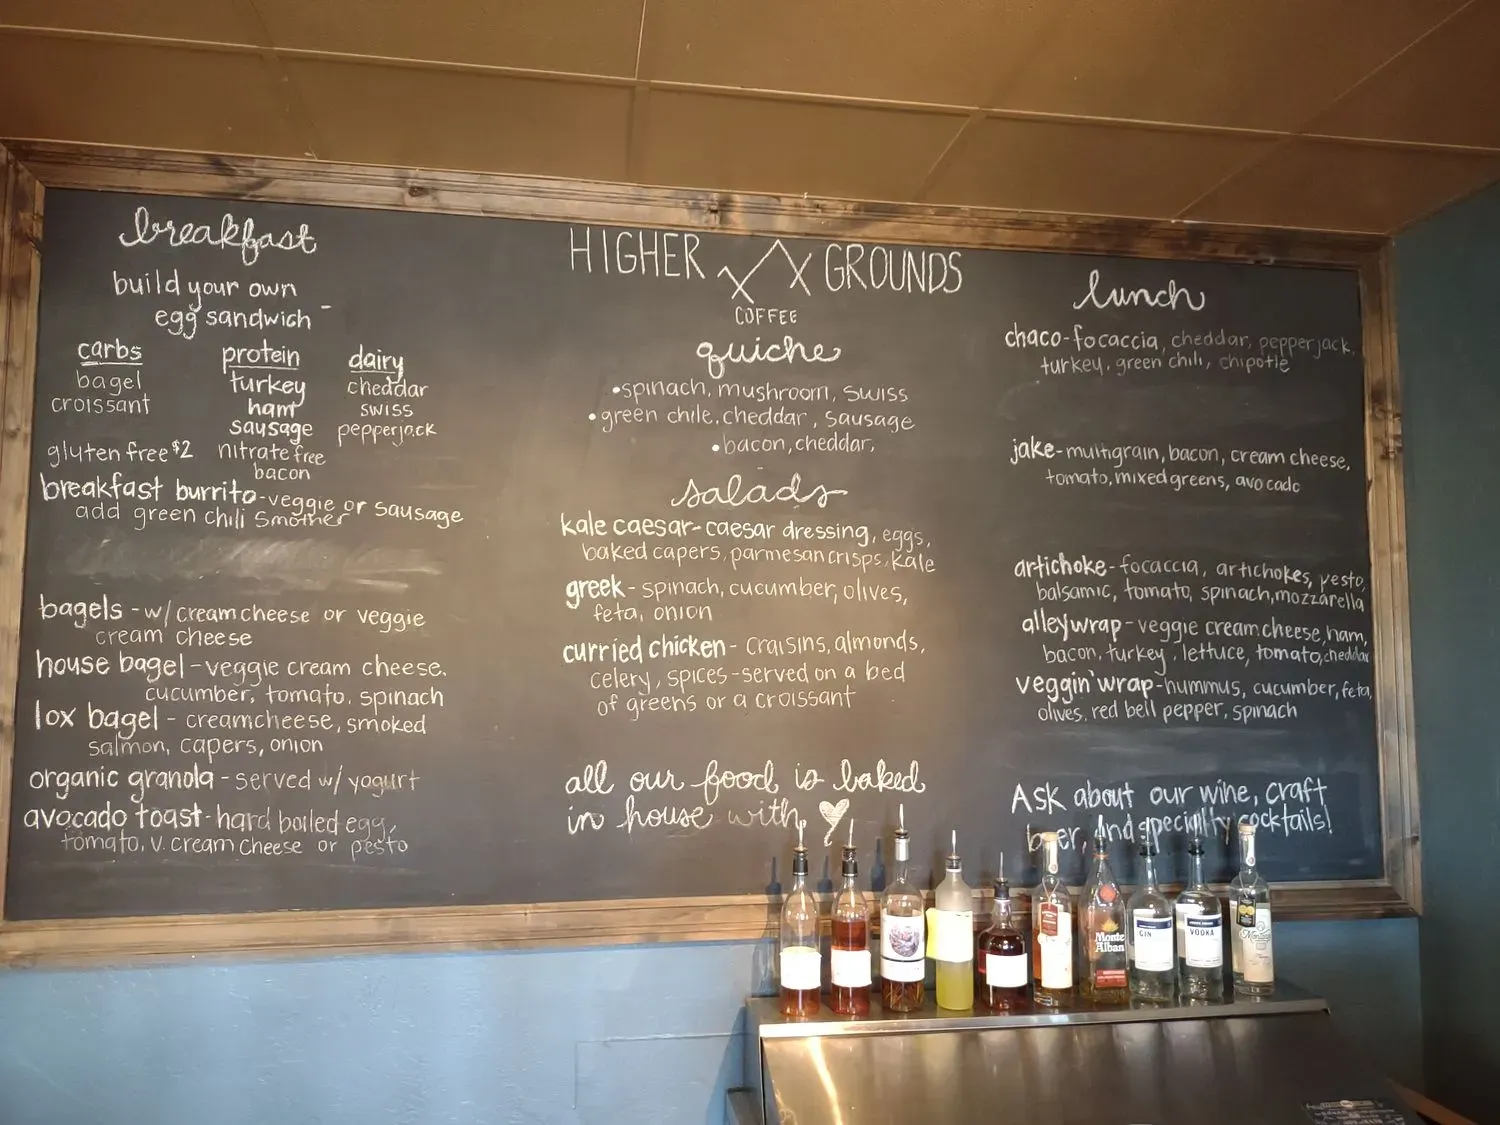 breakfast
build your own
egg sandwich -
carbs
bagel
croissant
gluten free $2
protein
turkey
ham
sausage
nitrate free
bacon
dairy
cheddar
swiss
pepperjack
breakfast burrito-veggie or sausage
add green chili smother
bagels - w/ cream cheese or veggie
cream cheese
house bagel - veggie cream cheese,
cucumber, tomato, spinach
lox bagel - creamcheese, smoked
salmon, capers, onion
organic granola - served w/ yogurt
avocado toast - hard boiled egg,
tomato, v. cream cheese or pesto
HIGHER GROUNDS
COFFEE
quiche
•spinach, mushroom, swiss
•green chile, cheddar, sausage
•bacon, cheddar,
salads
kale caesar- caesar dressing, eggs,
baked capers, parmesan crisps, kale
greek - spinach, cucumber, olives,
feta, onion
curried chicken - craisins, almonds,
celery, spices - served on a bed
of greens or a croissant
all our food is baked
in house with
lunch
chaco - focaccia, cheddar, pepperjack,
turkey, green chili, chipotle
jake - multigrain, bacon, cream cheese,
tomato, mixed greens, avocado
artichoke - focaccia, artichokes, pesto,
balsamic, tomato, spinach, mozzarella
alleywrap - veggie cream cheese, ham,
bacon, turkey, lettuce, tomato, cheddar
veggin' wrap - hummus, cucumber, feta,
olives, red bell pepper, spinach
Ask about our wine, craft
beer, and specialty cocktails!
Monte
Alban
GIN
VODKA